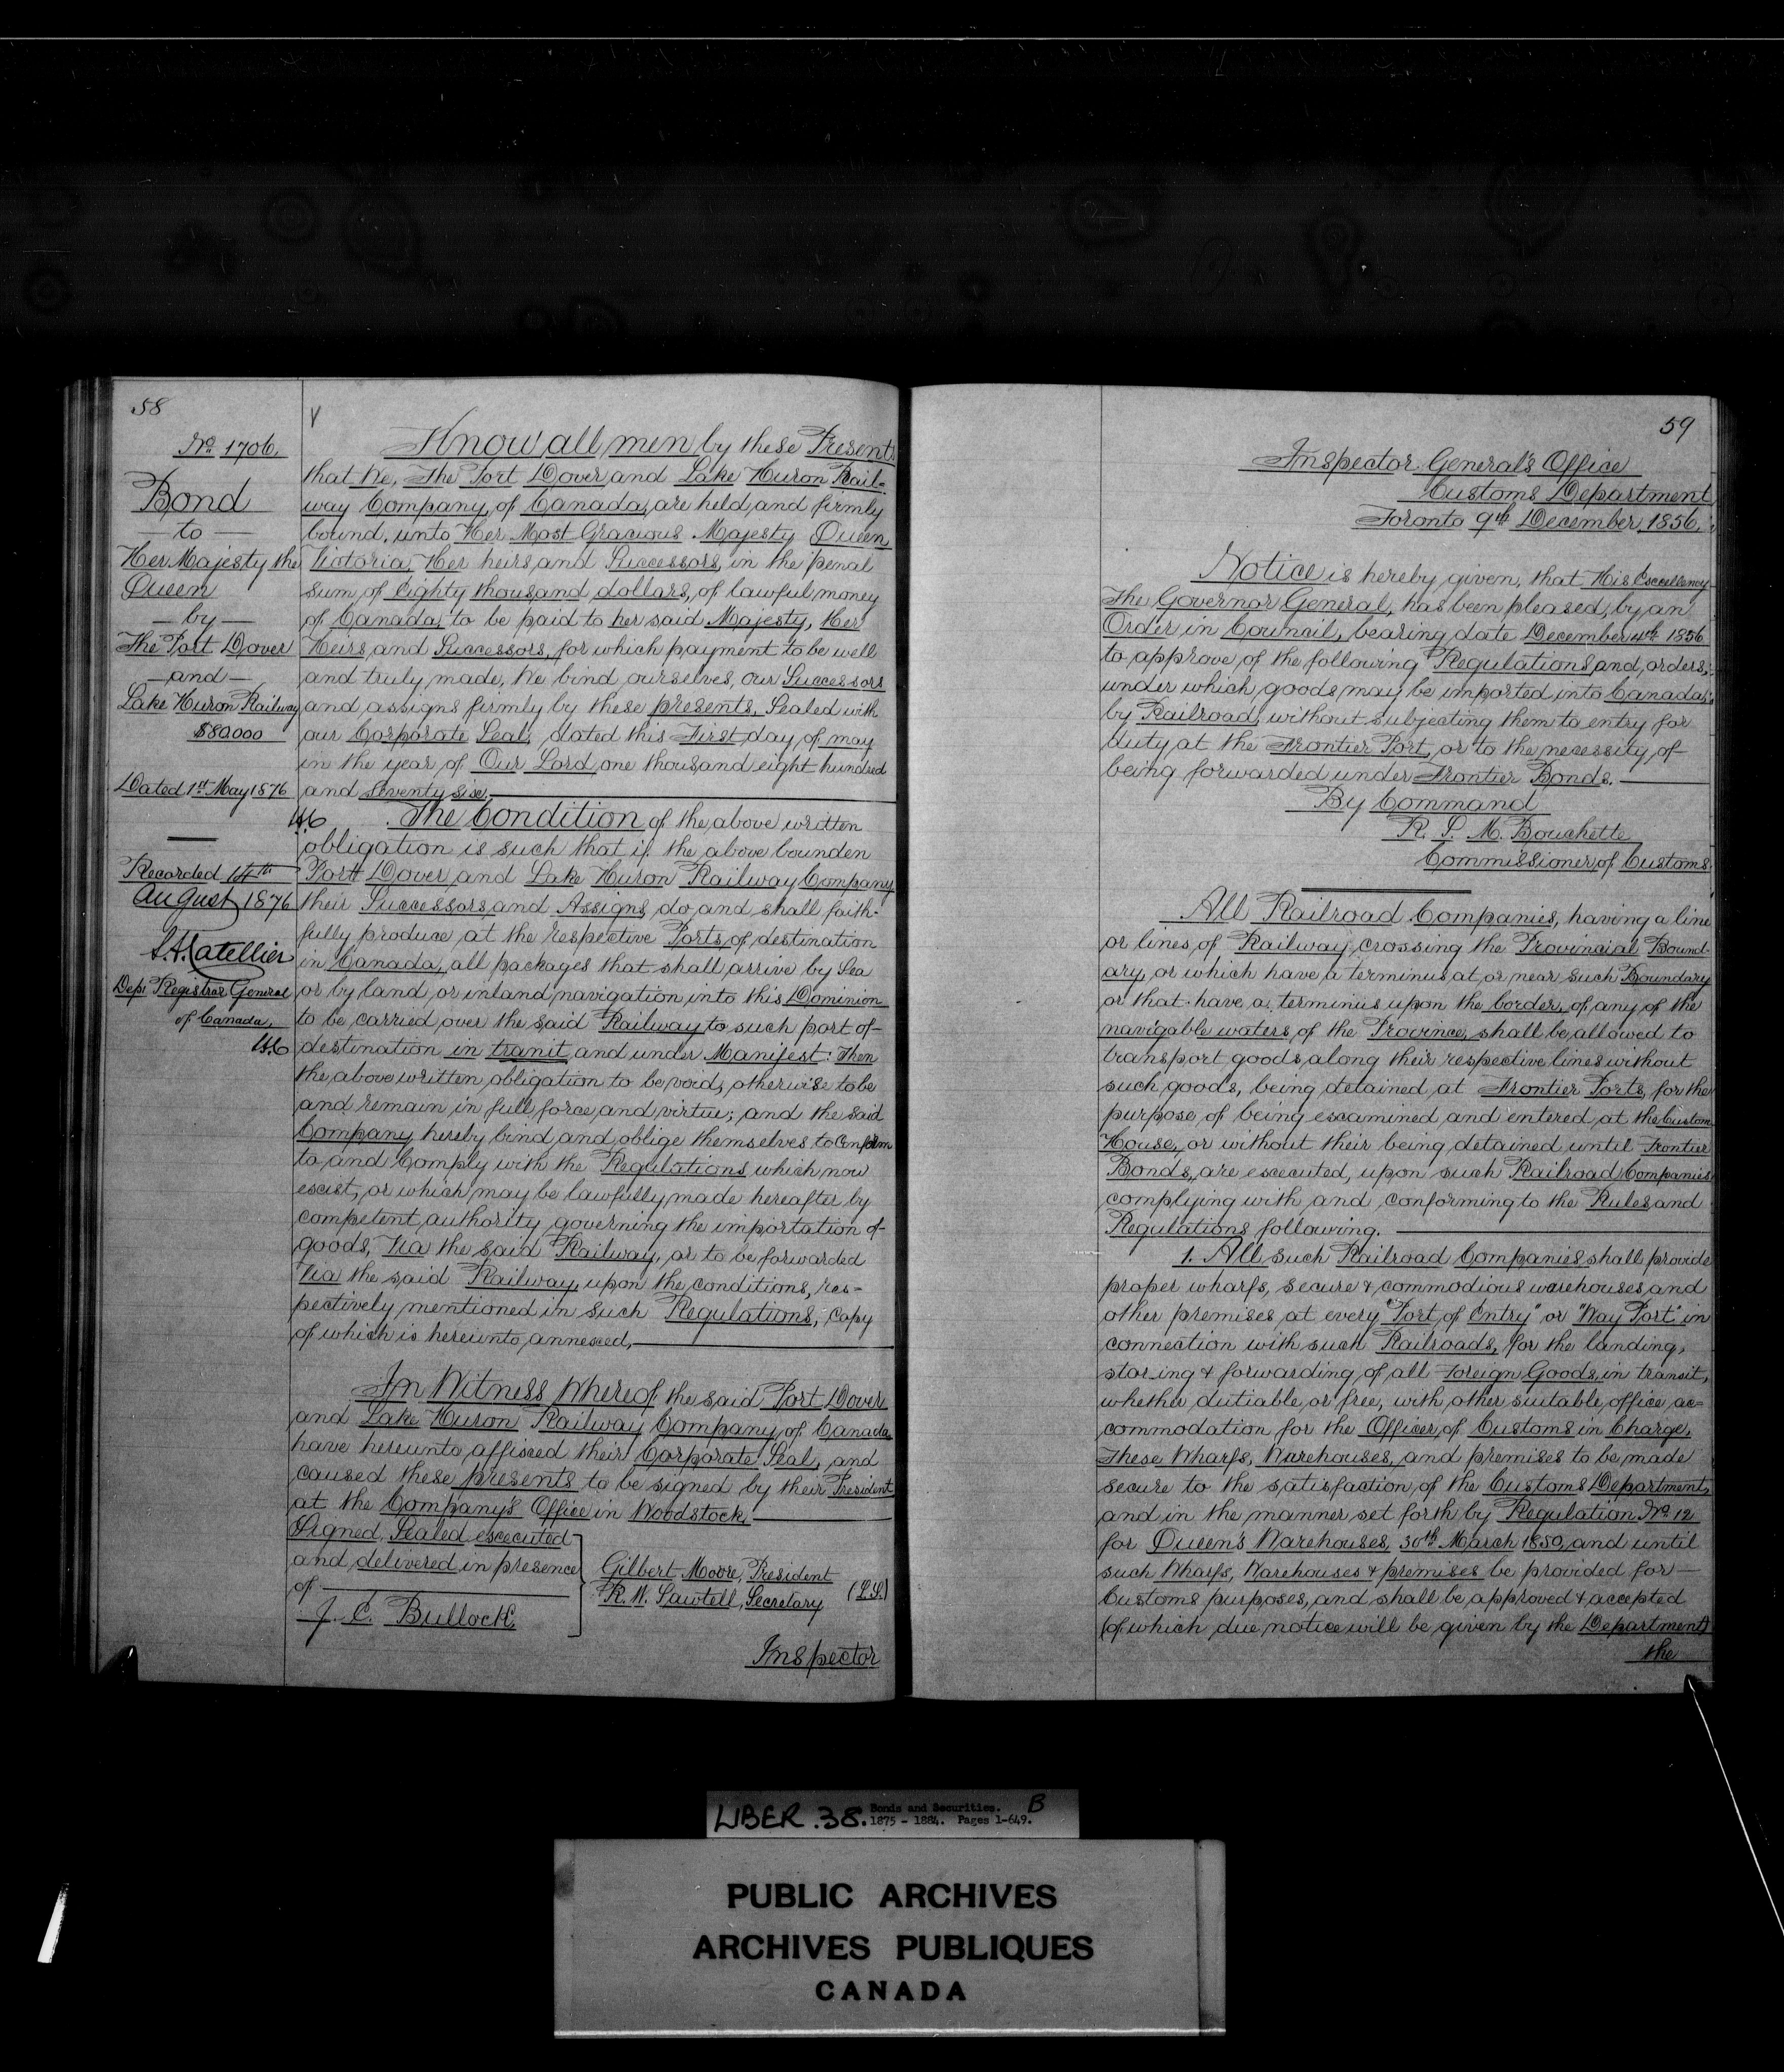 58
No 1706.
Bond
— to —
Her Majesty the
Queen
— by —
The Port Dover
— and —
Lake Huron Railway
$80.000
Dated 1st May 1876
Recorded 14th
August 1876
L.A. Catellier
Dep. Registrar General
of Canada,
Know all men by these Presents
that We, The Port Dover and Lake Huron Rail-
way Company, of Canada, are held and firmly
bound, unto Her Most Gracious Majesty Queen
Victoria, Her heirs and Successors, in the penal
sum of Eighty thousand dollars, of lawful money
of Canada, to be paid to her said Majesty, Her
Heirs and Successors, for which payment to be well
and truly made, We bind ourselves, our Successors
and assigns firmly by these presents, Sealed with
our Corporate Seal, dated this First day of may
in the year of Our Lord one thousand eight hundred
and Seventy six,
The Condition of the above written
obligation is such that if the above bounden
Port Dover and Lake Huron Railway Company
their Successors and Assigns do and shall faith-
fully produce at the respective Ports of destination
in Canada, all packages that shall arrive by Sea
or by land or inland navigation into this Dominion
to be carried over the said Railway to such port of
destination in tranit and under Manifest: Then
the above written obligation to be void, otherwise to be
and remain in full force and virtue; and the said
Company hereby bind and oblige themselves to Conform
to and Comply with the Regulations which now
exist, or which may be lawfully made hereafter by
competent authority governing the importation of
goods, Via the said Railway, or to be forwarded
Via the said Railway upon the conditions, res-
pectively mentioned in such Regulations, Copy
of which is hereunto annexed,
In Witness Whereof the said Port Dover
and Lake Huron Railway Company of Canada
have hereunto affixed their Corporate Seal, and
caused these presents to be signed by their President
at the Company's Office in Woodstock,
Signed, Sealed executed
and delivered in presence
of
J. C. Bullock.
Gilbert Moore, President
R. W. Sawtell, Secretary
(L.S.)
Inspector
59
Inspector General's Office
Customs Department
Toronto 9th December, 1856.
Notice is hereby given, that His Excellency
The Governor General, has been pleased, by an
Order in Council, bearing date December 4th 1856
to approve of the following Regulations and orders,
under which goods may be imported into Canada,
by Railroad, without subjecting them to entry for
duty at the Frontier Port, or to the necessity of
being forwarded under Frontier Bonds.
By Command
R. S. M. Bouchette
Commissioner of Customs
All Railroad Companies, having a line
or lines of Railway crossing the Provincial Bound-
ary, or which have a terminus at or near such Boundary
or that have a terminus upon the border, of any of the
navigable waters of the Province, shall be allowed to
transport goods along their respective lines without
such goods, being detained at Frontier Ports, for the
purpose of being examined and entered at the Custom
House, or without their being detained until Frontier
Bonds, are executed, upon such Railroad Companies
complying with and conforming to the Rules and
Regulations following.
1. All such Railroad Companies shall provide
proper wharfs, secure & commodious warehouses and
other premises at every "Port of Entry" or "Way Port" in
connection with such Railroads, for the landing,
storing & forwarding of all Foreign Goods, in transit,
whether dutiable, or free, with other suitable office ac=
commodation for the Officer of Customs in Charge,
These Wharfs, Warehouses, and premises to be made
secure to the satisfaction, of the Customs Department,
and in the manner set forth by Regulation No 12
for Queen's Warehouses, 30th March 1850, and until
such Wharfs, Warehouses & premises be provided for
Customs purposes, and shall be approved & accepted
(of which due notice will be given by the Department)
the
LIBER .38.
Bonds and Securities.
1875 - 1884. Pages 1-649.
B
PUBLIC ARCHIVES
ARCHIVES PUBLIQUES
CANADA